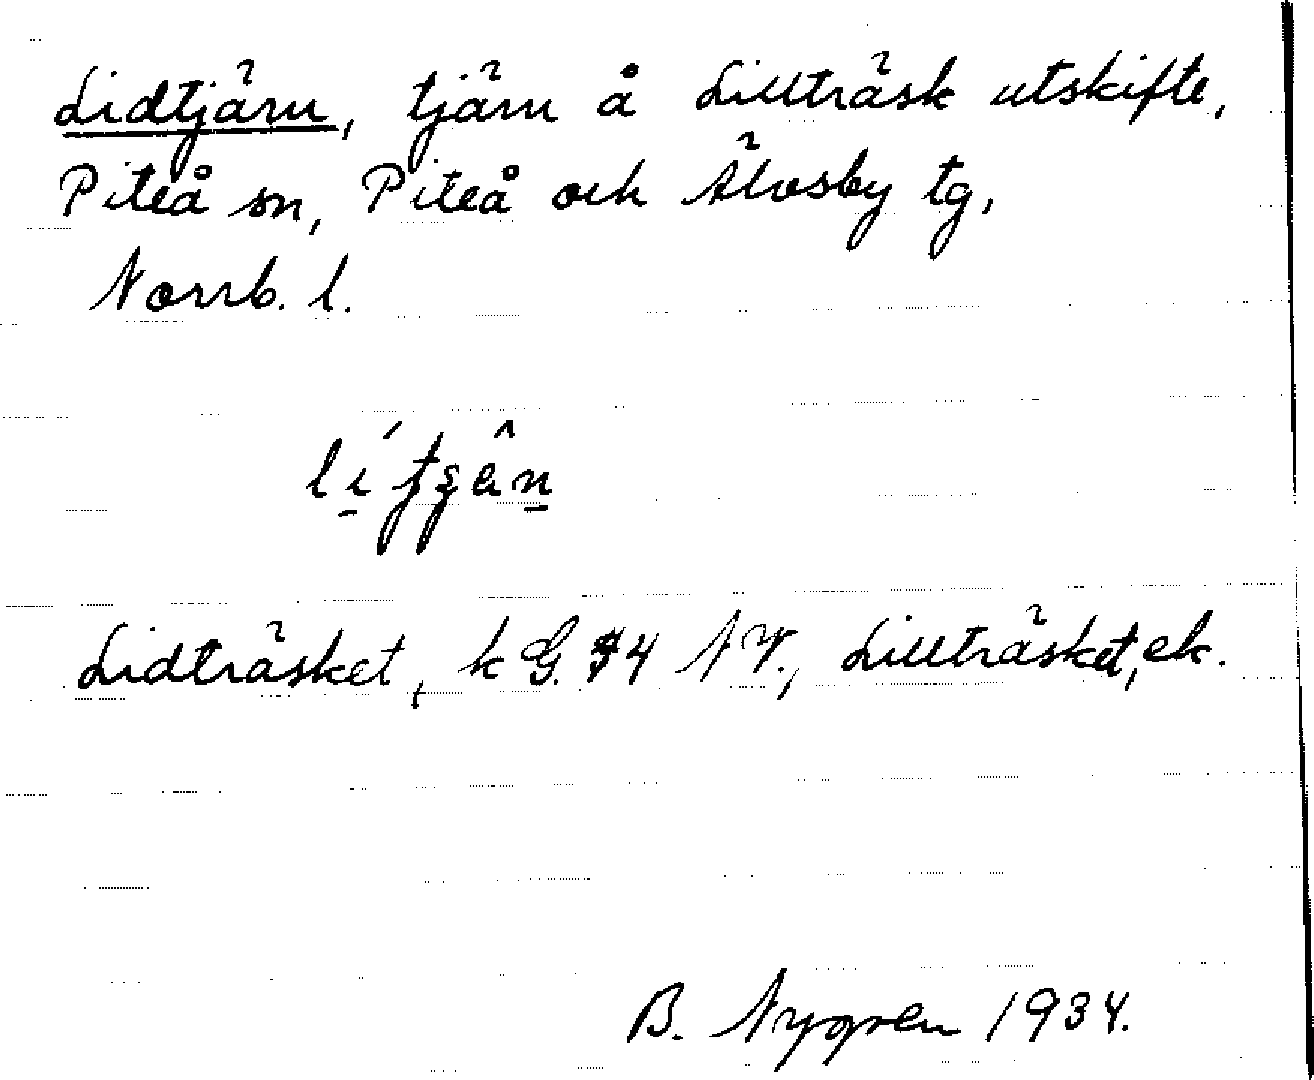 Lidtjärn, tjärn å Lillträsk utskifte,
Piteå sn, Piteå och Älvsby tg,
Norrb. l.
Lidträsket, k G. 54 NV., Lillträsket, ek.
B. Nygren 1934.